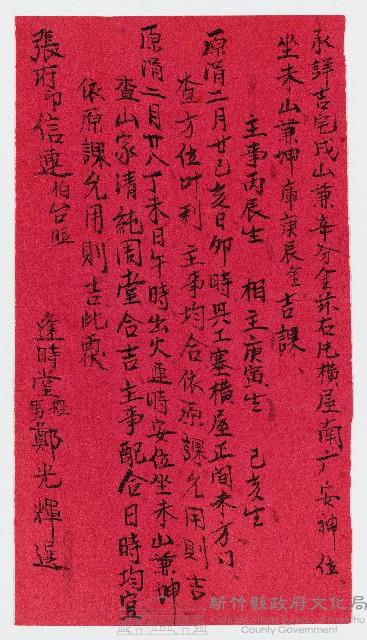 承詳吉宅戌山兼辛分金茲右片橫屋南广安神位
坐未山兼坤庫庚辰金吉課、
主事丙辰生 相主庚寅生 己亥生
原涓二月廿己亥日卯時興工塞橫屋正間未方门
查方位叶利 主事均合依原課允用則吉
原涓二月廿八丁未日午時出火進時安位坐未山兼坤
查山家清純周堂合吉主事配合日時均宜
依原課允用則吉此覆
張府印信進柏台照
逢時堂鄭光輝選
男
新竹縣政府文化局
County Government